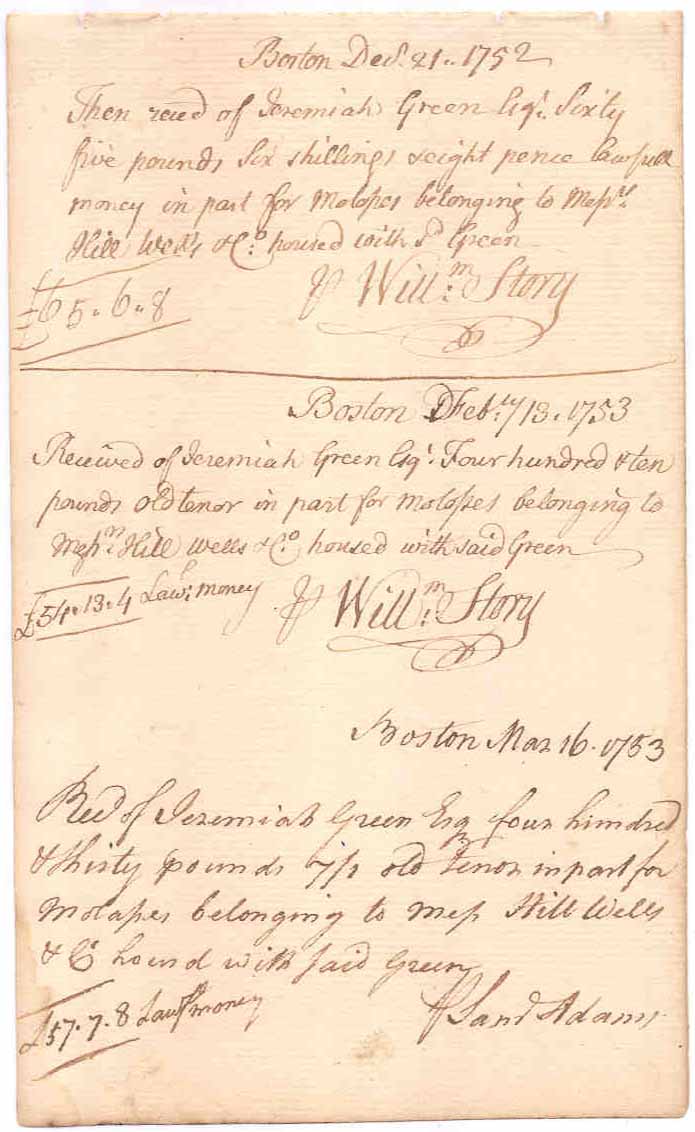 Boston Decr. 21. 1752
Then recd of Jeremiah Green Esqr. Sixty
five pounds Six shillings & eight pence lawfull
money in part for Molosses belonging to Messrs.
Hill Wells & Co. housed with sd Green
£65.6.8 ⅌ Willm. Story
Boston Febry 13. 1753
Received of Jeremiah Green Esqr. Four hundred & ten
pounds old tenor in part for Molosses belonging to
Messrs. Hill Wells & Co. housed with said Green
£54.13.4 Lawl. money ⅌ Willm. Story
Boston Mar 16. 1753
Recd of Jeremiah Green Esqr four hundred
& thirty pounds 7/1 old tenor in part for
Molasses belonging to Mess Hill Wells
& Co housed with said Green
£57.7.8 Lawfl money ⅌ Saml Adams